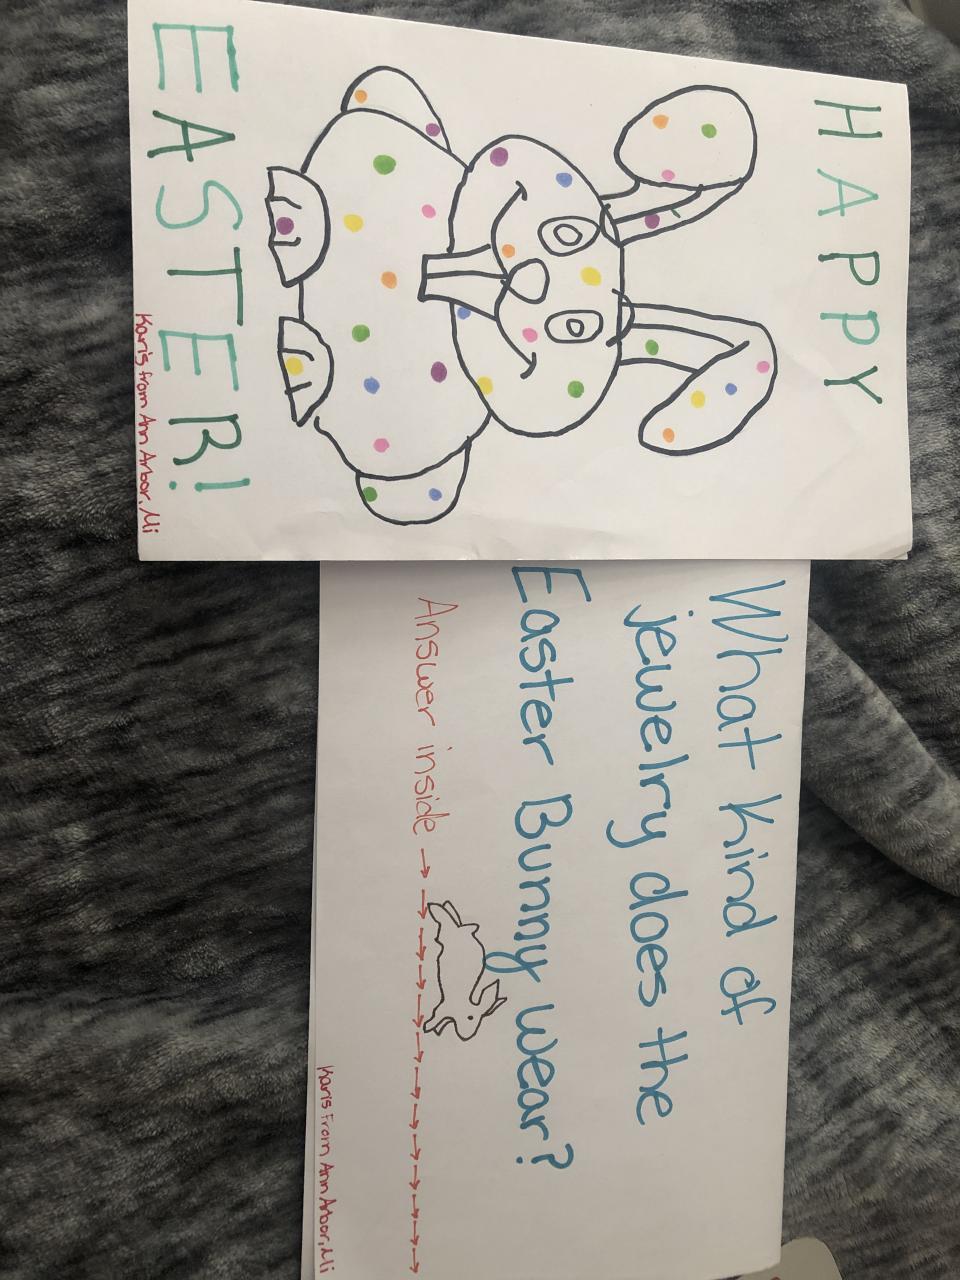 HAPPY
EASTER!
Karis from Ann Arbor, Mi
What kind of
jewelry does the
Easter Bunny wear?
Answer inside → → → → → → → → → → → →
Karis From Ann Arbor, Mi